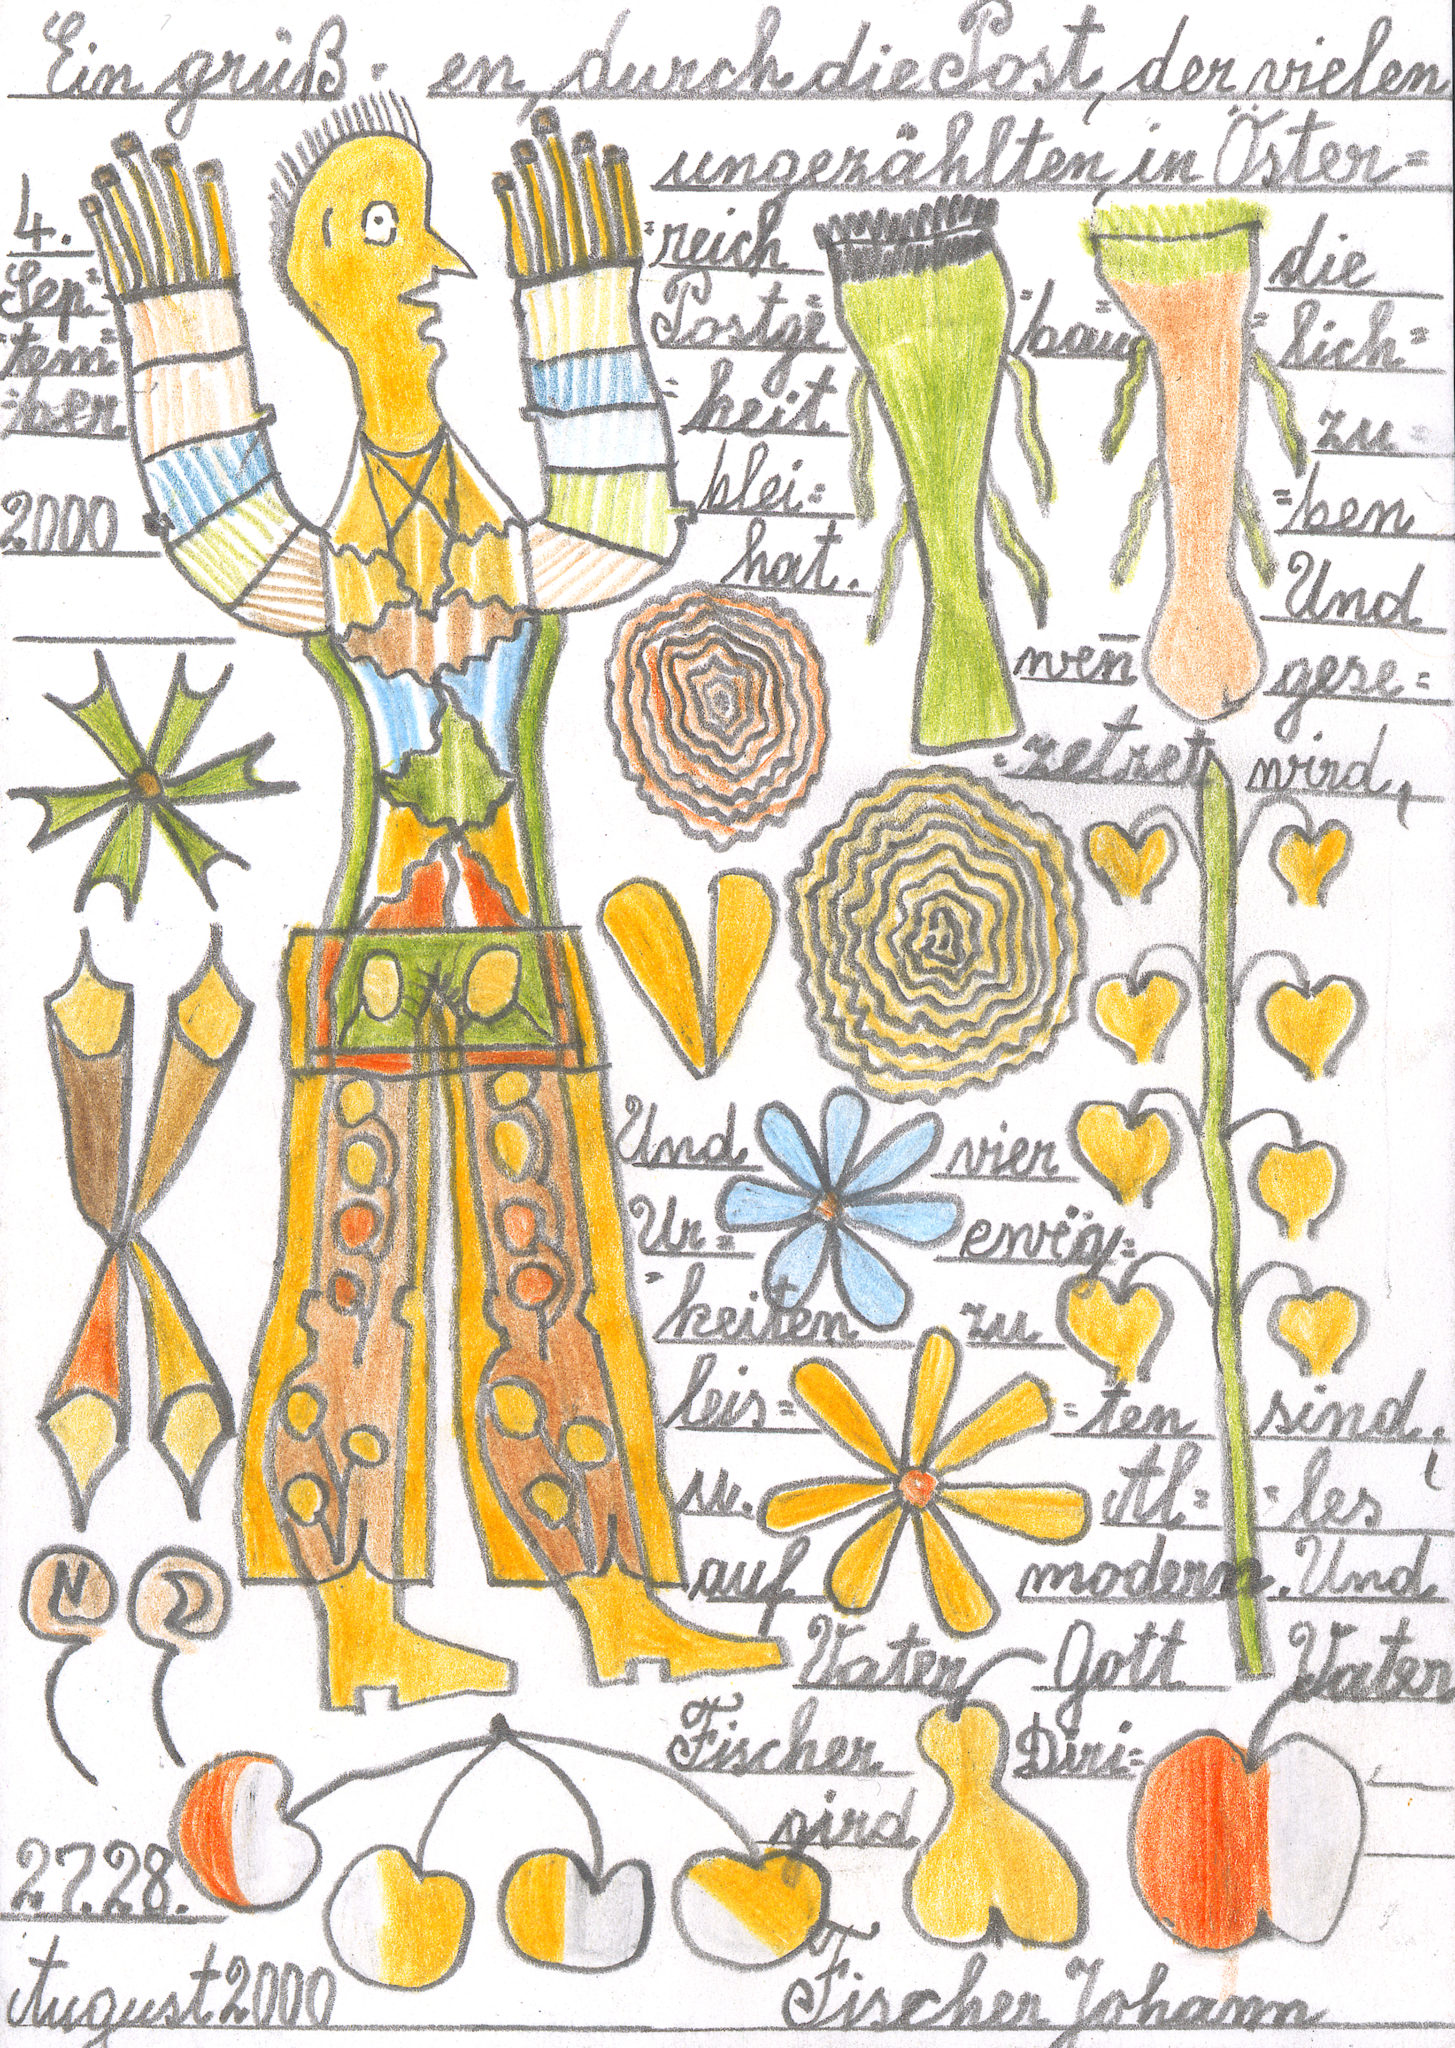 Ein grüß · en, durch die Post, der vielen
ungezählten, in Öster=
=reich =bau= die
Postge= =lich=
=keit zu=
blei= =ben
hat. Und
wen̄ gese=
=zetret wird,
4.
Sep=
=tem=
=ber
2000
Und vier
Ur= ewig=
=keiten zu
leis= =ten sind,
u. Al= =les
auf modern. Und
Vater Gott Vater
Fischer Diri=
gird
N
27.28.
August 2000
Fischer Johann